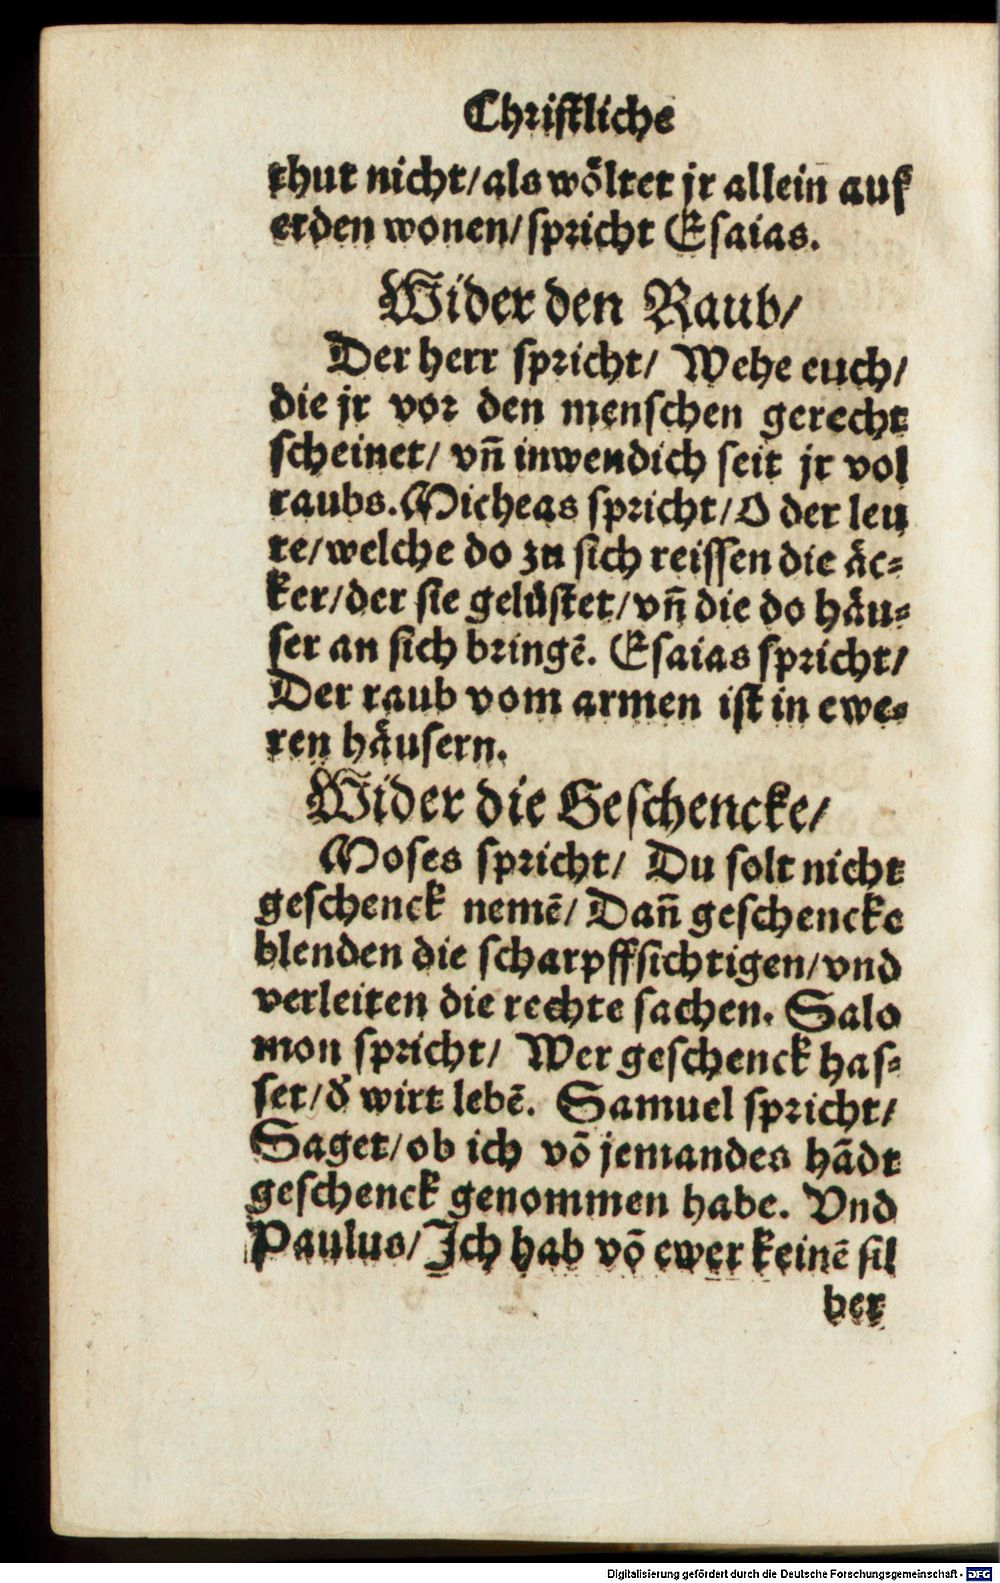 Christliche
thut nicht/als wöltet jr allein auf
erden wonen/spricht Esaias.
Wider den Raub/
Der herr spricht/ Wehe euch/
die jr vor den menschen gerecht
scheinet/ vñ inwendich seit jr vol
raubs. Micheas spricht/O der leu
te/welche do zu sich reissen die äc⸗
ker/der sie gelüstet/vñ die do häu⸗
ser an sich bringē. Esaias spricht/
Der raub vom armen ist in ewe⸗
ren häusern.
Wider die Geschencke/
Moses spricht/ Du solt nicht
geschenck nemē/Dañ geschencke
blenden die scharpffsichtigen/vnd
verleiten die rechte sachen. Salo
mon spricht/ Wer geschenck has⸗
set/d̕ wirt lebē. Samuel spricht/
Saget/ob ich vō jemandes hādt
geschenck genommen habe. Vnd
Paulus/Ich hab vō ewer keinē sil
ber
Digitalisierung gefördert durch die Deutsche Forschungsgemeinschaft - DFG